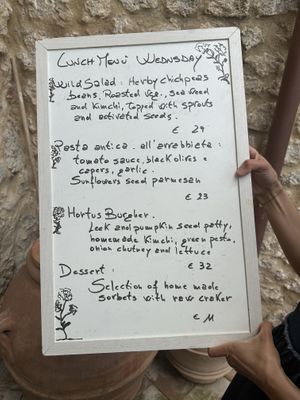 Lunch Menù Wednusday
Wild Salad : Herby chichpeas
beans, Roasted veg., sea weed
and Kimchi, topped with sprouts
and activated seeds.
€ 29
Pasta antica . all'arrebbieta :
tomato sauce, black olives e
capers, garlic.
Sunflowers seed parmesan
€ 23
Hortus Burgher.
Leek and pumpkin seed patty,
homemade Kimchi, green pesto,
onion chutney and lettuce
€ 32
Dessert :
Selection of home made
sorbets with raw craker
€ 11